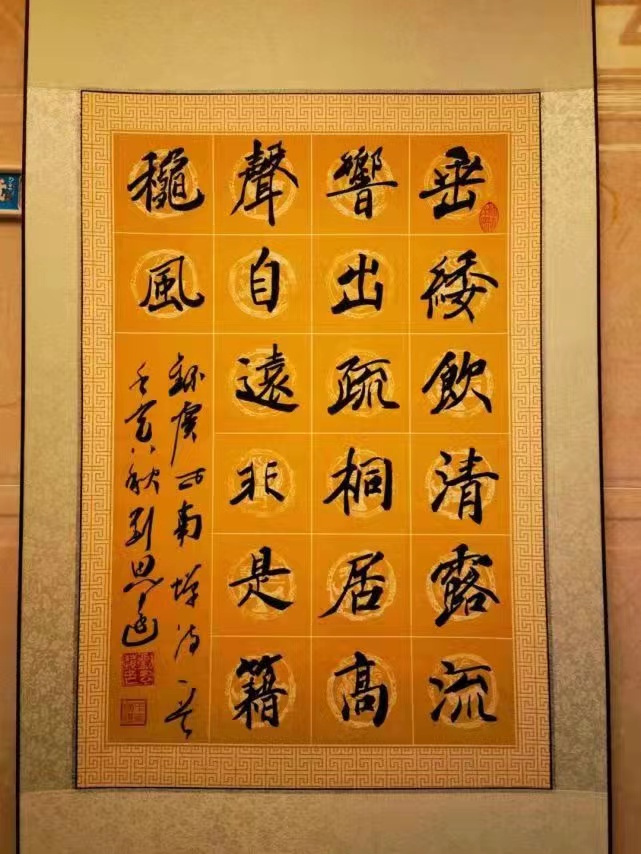 垂緌飲清露流
響出疏桐居高
聲自遠非是籍
穐風
錄虞世南蟬詩一首
壬寅秋刘思